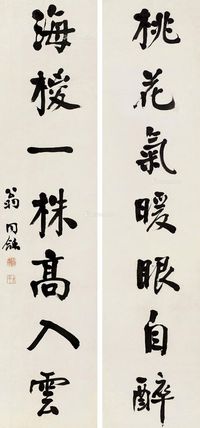 桃花氣暖眼自醉
海椶一株髙入雲
翁同龢